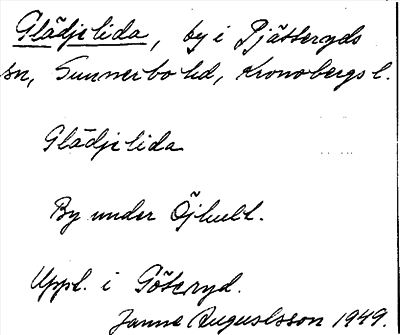 Glädjelida, by i Pjätteryds
sn, Sunnerbo hd, Kronobergs l.
Glädjelida
By under Öjhult.
Uppl. i Göteryd.
Janne Augustsson 1949.